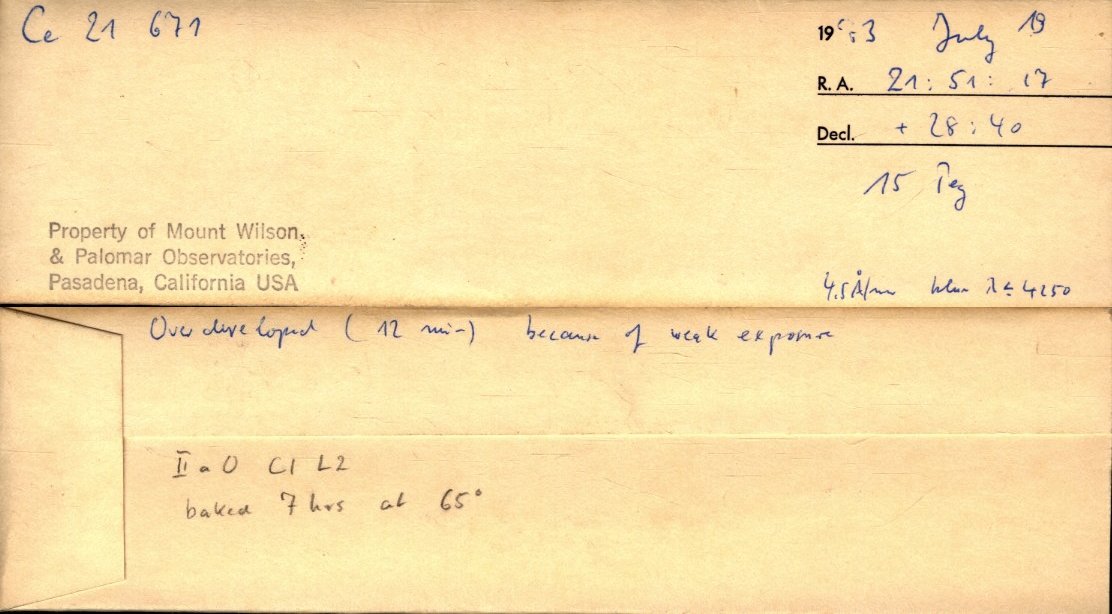 Ce 21 671
1973 July 19
R.A. 21 : 51 : 17
Decl. + 28 : 40
15 Peg
Property of Mount Wilson
& Palomar Observatories,
Pasadena, California USA
4.5 Å/mm blue λ ≤ 4250
Overdeveloped ( 12 min ) because of weak exposure
II a O C1 L2
baked 7 hrs at 65°